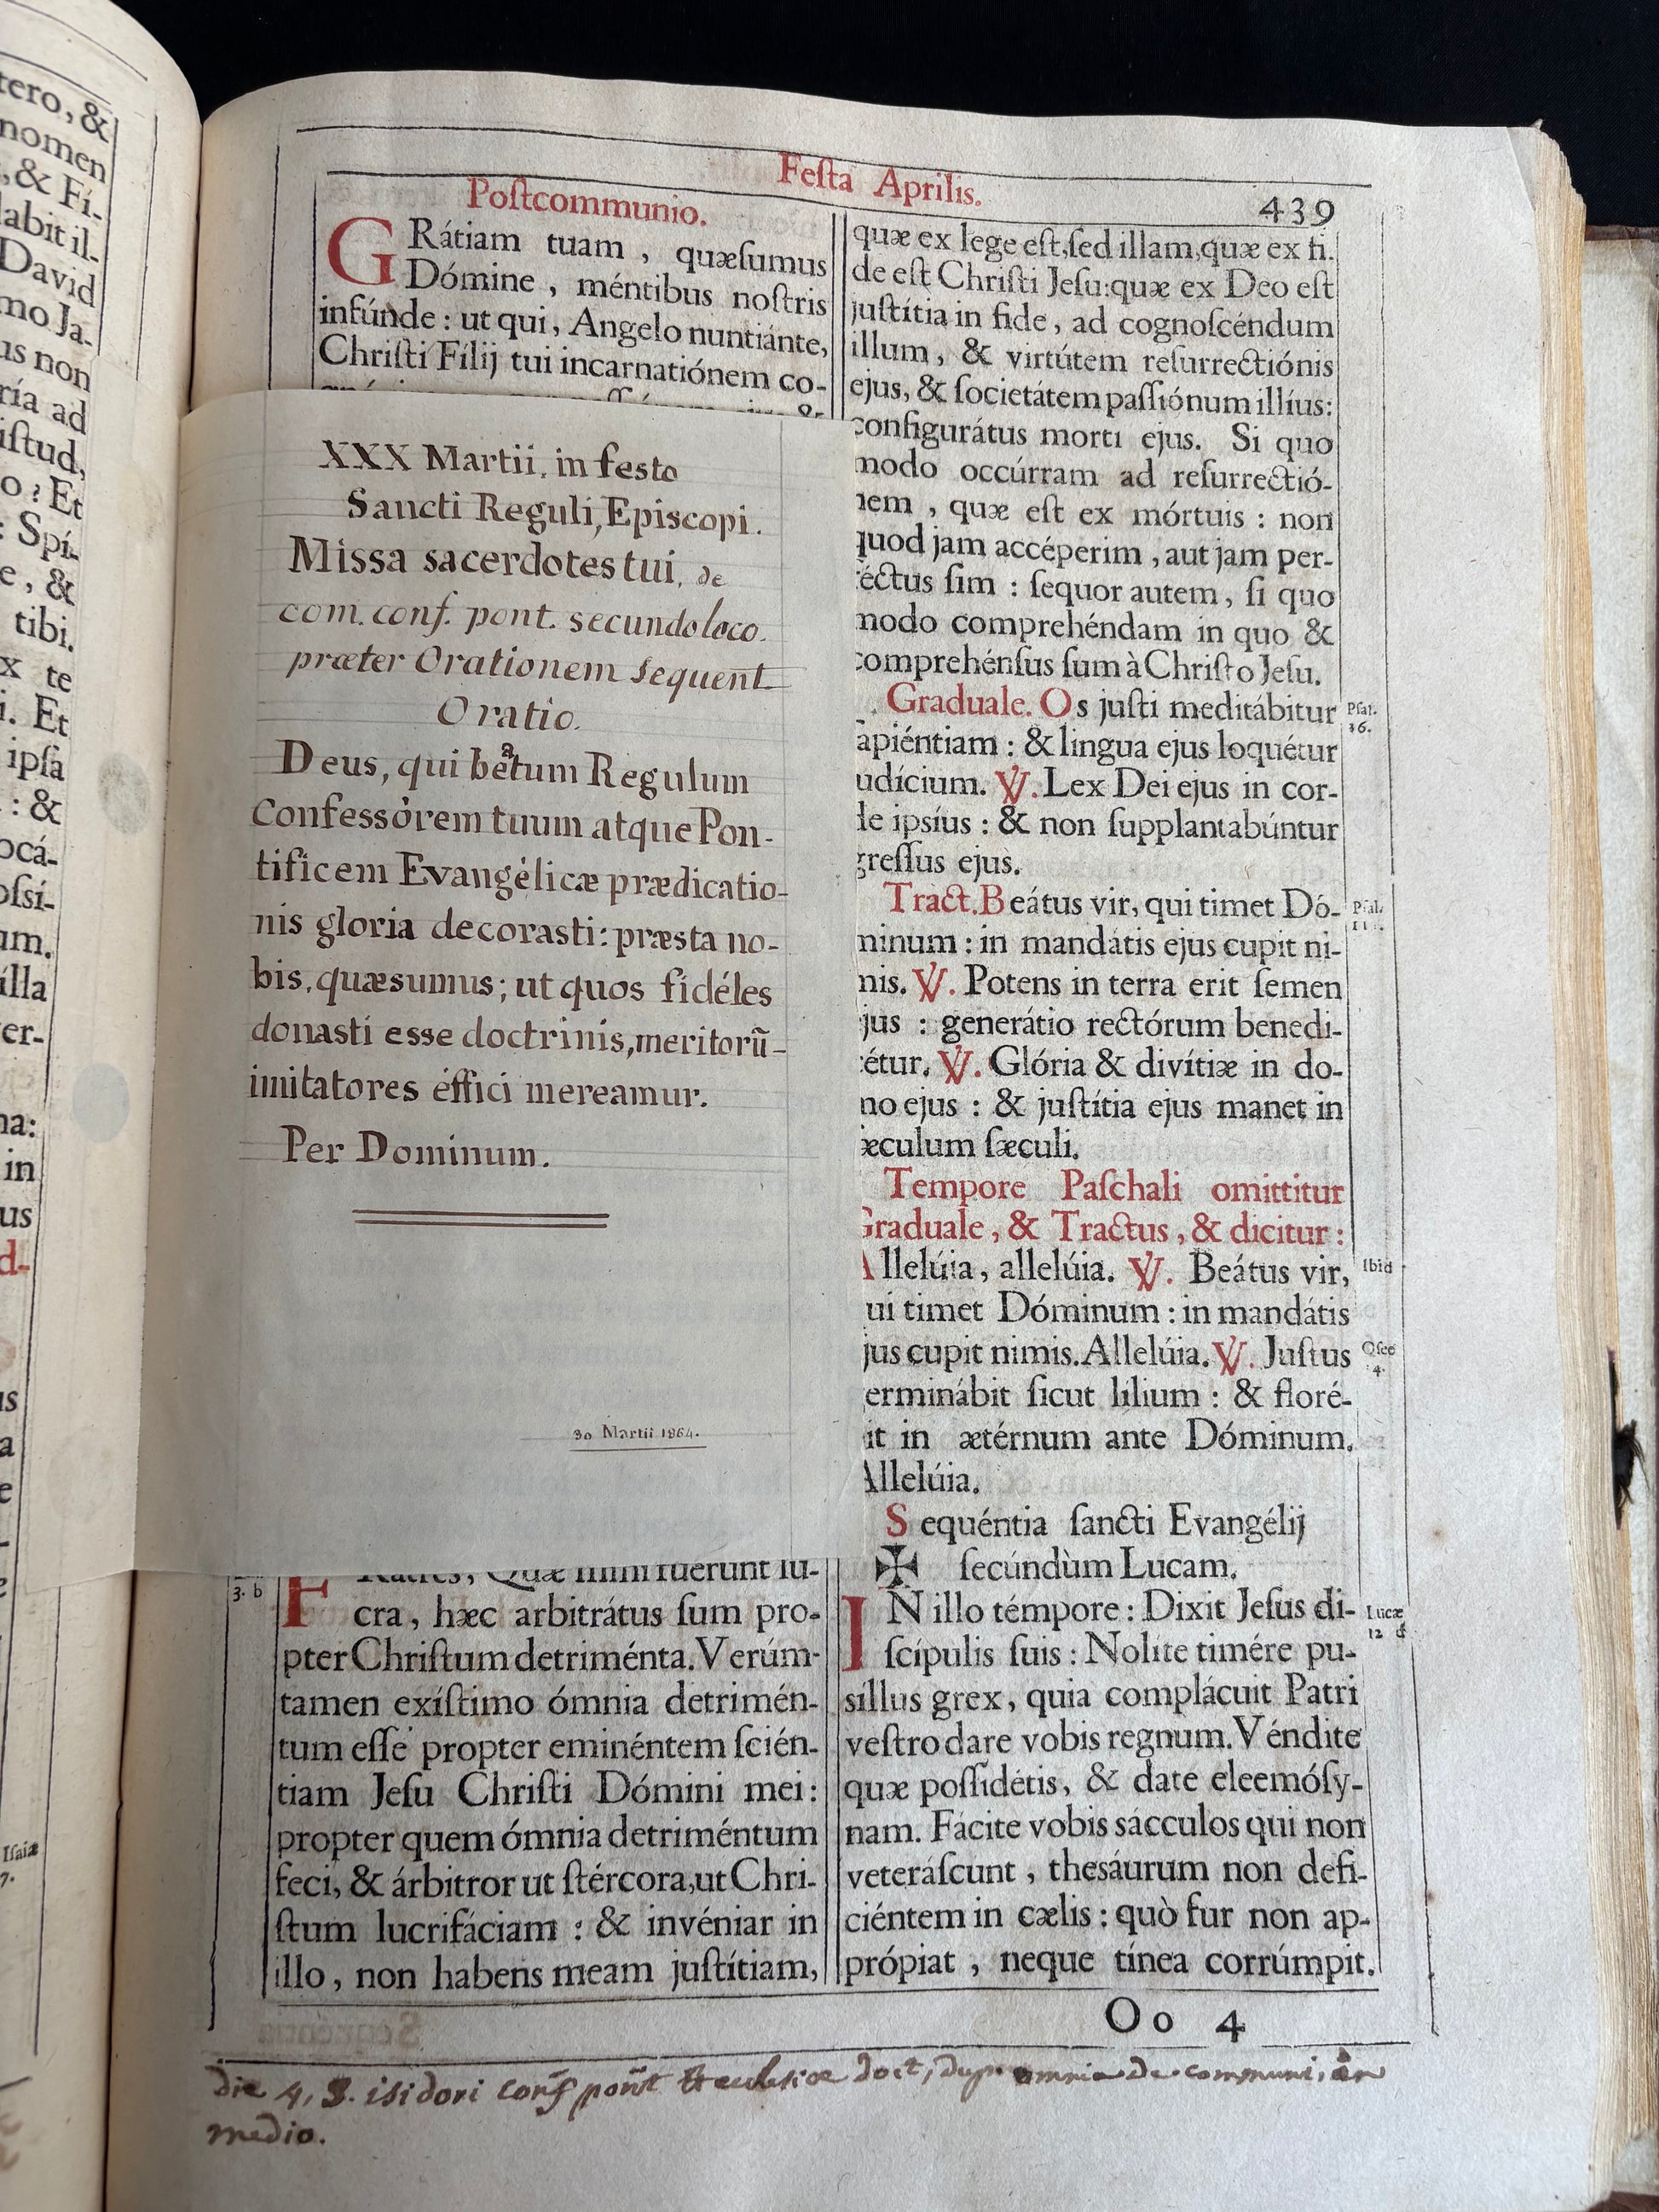 tero, &
nomen
, & Fí-
labit il-
David
mo Ja-
us non
ría ad
iſtud,
o? Et
: Spí-
e, &
tibi.
x te
i. Et
ipſa
: &
ocá-
oſsí-
um.
illa
er-
na:
in
us
d-
us
a
e
Iſaiæ
7.
Feſta Aprilis.
439
Poſtcommunio.
GRátiam tuam, quæſumus
Dómine, méntibus noſtris
infúnde: ut qui, Angelo nuntiánte,
Chriſti Fílij tui incarnatiónem co-
XXX Martii, in festo
Sancti Reguli, Episcopi.
Missa sacerdotes tui, de
com. conf. pont. secundo loco.
præter Orationem sequent
Oratio.
Deus, qui beatum Regulum
Confessórem tuum atque Pon-
tificem Evangélicæ prædicatio-
nis gloria decorasti: præsta no-
bis, quæsumus; ut quos fidéles
donasti esse doctrinis, meritorū-
imitatores éffici mereamur.
Per Dominum.
30 Martii 1864.
3. b
FRatres, Quæ mihi fuerunt lu-
cra, hæc arbitrátus ſum pro-
pter Chriſtum detriménta. Verúm-
tamen exíſtimo ómnia detrimén-
tum eſſe propter eminéntem ſcién-
tiam Jeſu Chriſti Dómini mei:
propter quem ómnia detriméntum
feci, & árbitror ut ſtércora, ut Chri-
ſtum lucrifáciam: & invéniar in
illo, non habens meam juſtítiam,
quæ ex lege eſt, ſed illam, quæ ex fi-
de eſt Chriſti Jeſu: quæ ex Deo eſt
juſtítia in fide, ad cognoſcéndum
illum, & virtútem reſurrectiónis
ejus, & ſocietátem paſſiónum illíus:
configurátus morti ejus. Si quo
modo occúrram ad reſurrectió-
nem, quæ eſt ex mórtuis: non
quod jam accéperim, aut jam per-
féctus ſim: ſequor autem, ſi quo
modo comprehéndam in quo &
comprehénſus ſum à Chriſto Jeſu.
Graduale. Os juſti meditábitur
Pſal.
36.
ſapiéntiam: & lingua ejus loquétur
udícium. ℣. Lex Dei ejus in cor-
de ipsíus: & non ſupplantabúntur
greſſus ejus.
Tract. Beátus vir, qui timet Dó-
Pſal.
111.
minum: in mandátis ejus cupit ni-
mis. ℣. Potens in terra erit ſemen
ejus: generátio rectórum benedi-
cétur. ℣. Glória & divítiæ in do-
mo ejus: & juſtítia ejus manet in
ſæculum ſæculi.
Tempore Paſchali omittitur
Graduale, & Tractus, & dicitur:
Allelúia, allelúia. ℣. Beátus vir,
Ibid
qui timet Dóminum: in mandátis
ejus cupit nimis. Allelúia. ℣. Juſtus
Oſee
4.
germinábit ſicut lílium: & floré-
bit in ætérnum ante Dóminum.
Allelúia.
Sequéntia ſancti Evangélij
✠ ſecúndùm Lucam.
IN illo témpore: Dixit Jeſus di-
Lucæ
12 d
ſcípulis ſuis: Nolite timére pu-
síllus grex, quia complácuit Patri
veſtro dare vobis regnum. Véndite
quæ poſſidétis, & date eleemóſy-
nam. Fácite vobis sácculos qui non
veteráſcunt, theſáurum non defi-
ciéntem in cælis: quò fur non ap-
própiat, neque tínea corrúmpit.
Oo 4
die 4, S. isidori conf pont et ecclesiæ doct, dup. omnia de communi, in
medio.